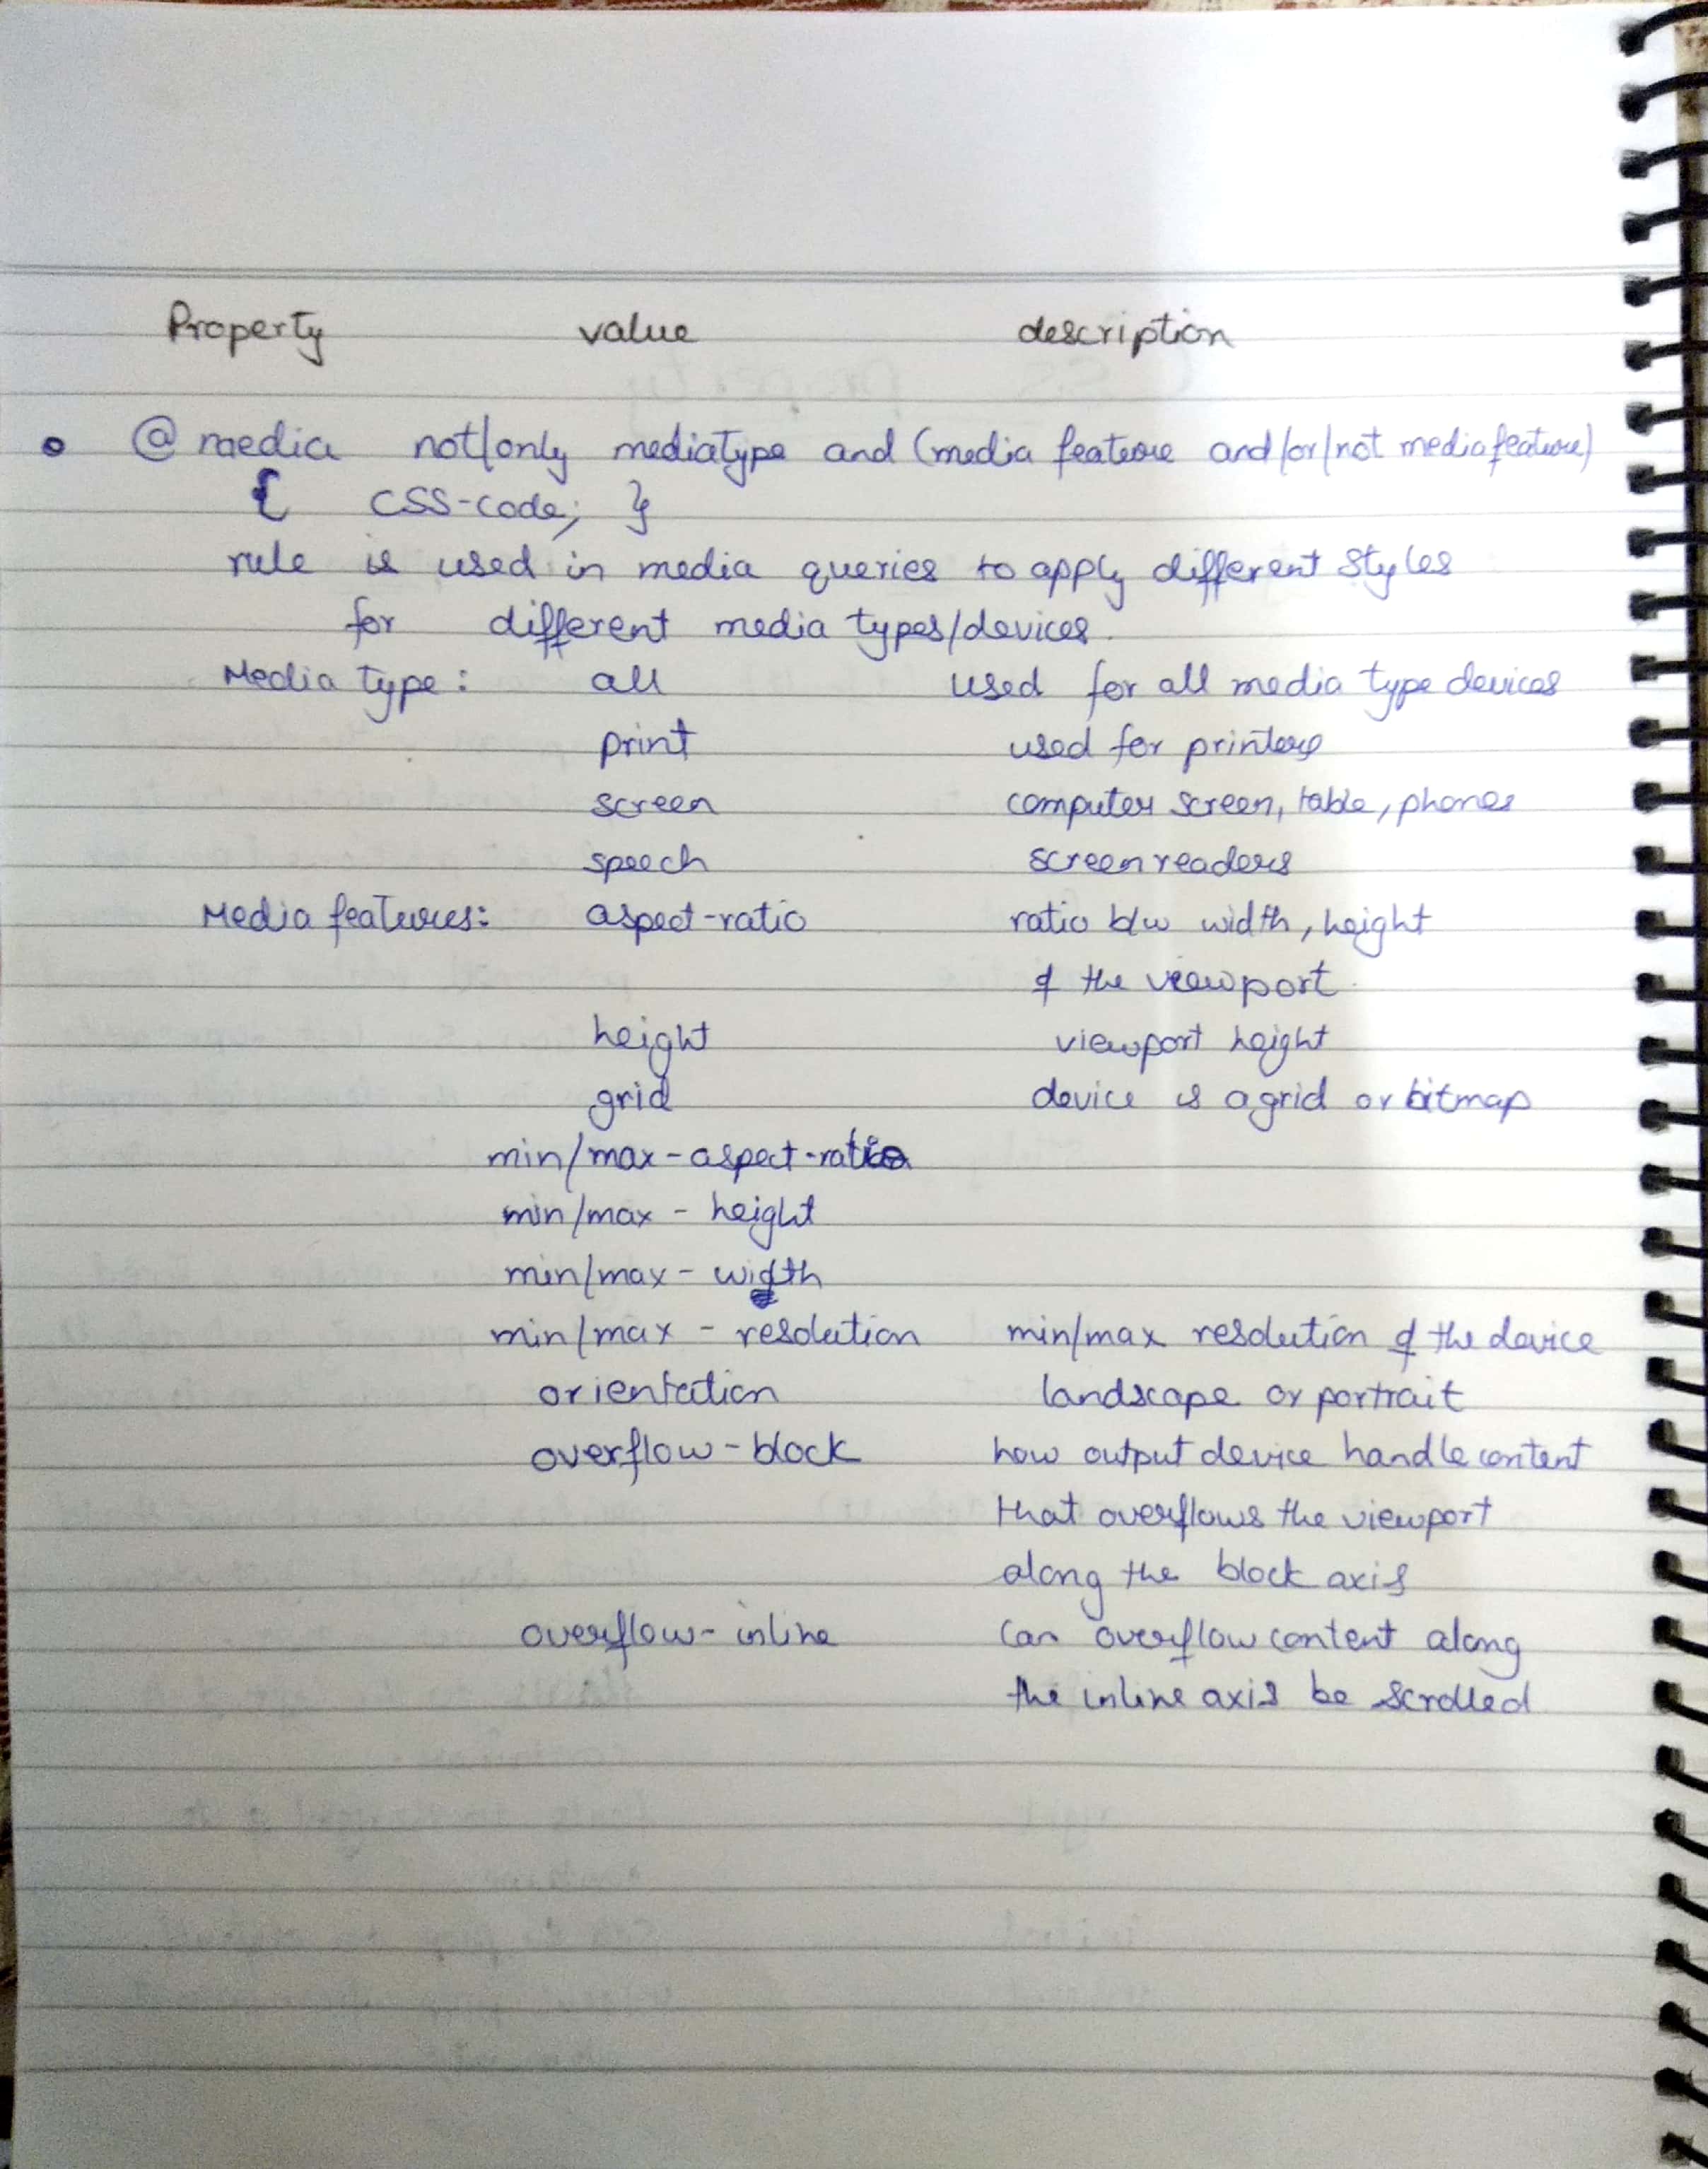 Property value description
@media not/only mediatype and (media feature and/or/not mediafeature)
{ CSS-code; }
rule is used in media queries to apply different styles
for different media types/devices.
Media type: all used for all media type devices
print used for printers
screen computer screen, table, phones
speech screenreaders
Media features: aspect-ratio ratio b/w width, height
of the viewport.
height viewport height
grid device is a grid or bitmap
min/max-aspect-ratio
min/max - height
min/max - width
min/max - resolution min/max resolution of the device
orientation landscape or portrait
overflow-block how output device handle content
that overflows the viewport
along the block axis
overflow-inline can overflow content along
the inline axis be scrolled